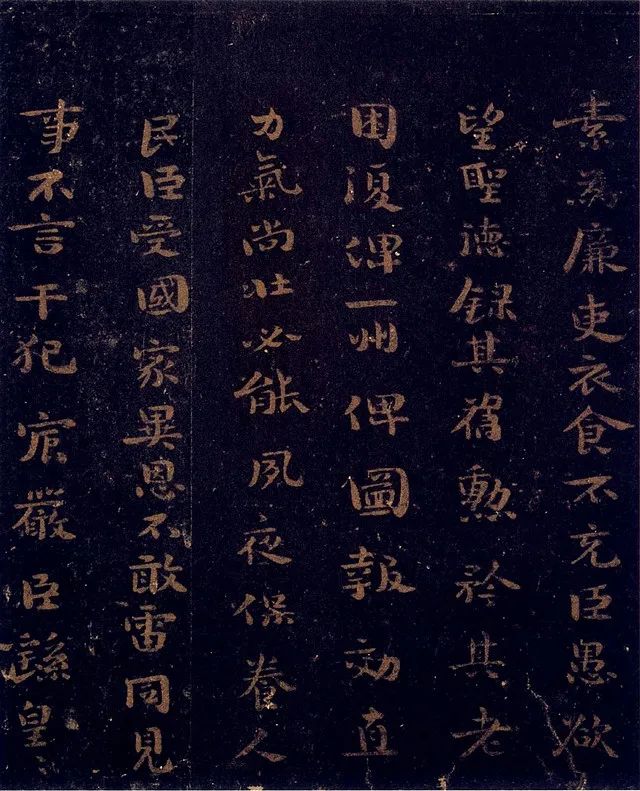 素爲廉吏衣食不充臣愚欲
望聖德録其舊勳矜其老
困復俾一州俾圖報効直
力氣尚壯必能夙夜保養人
民臣受國家異恩不敢雷同見
事不言干犯宸嚴臣繇皇〻